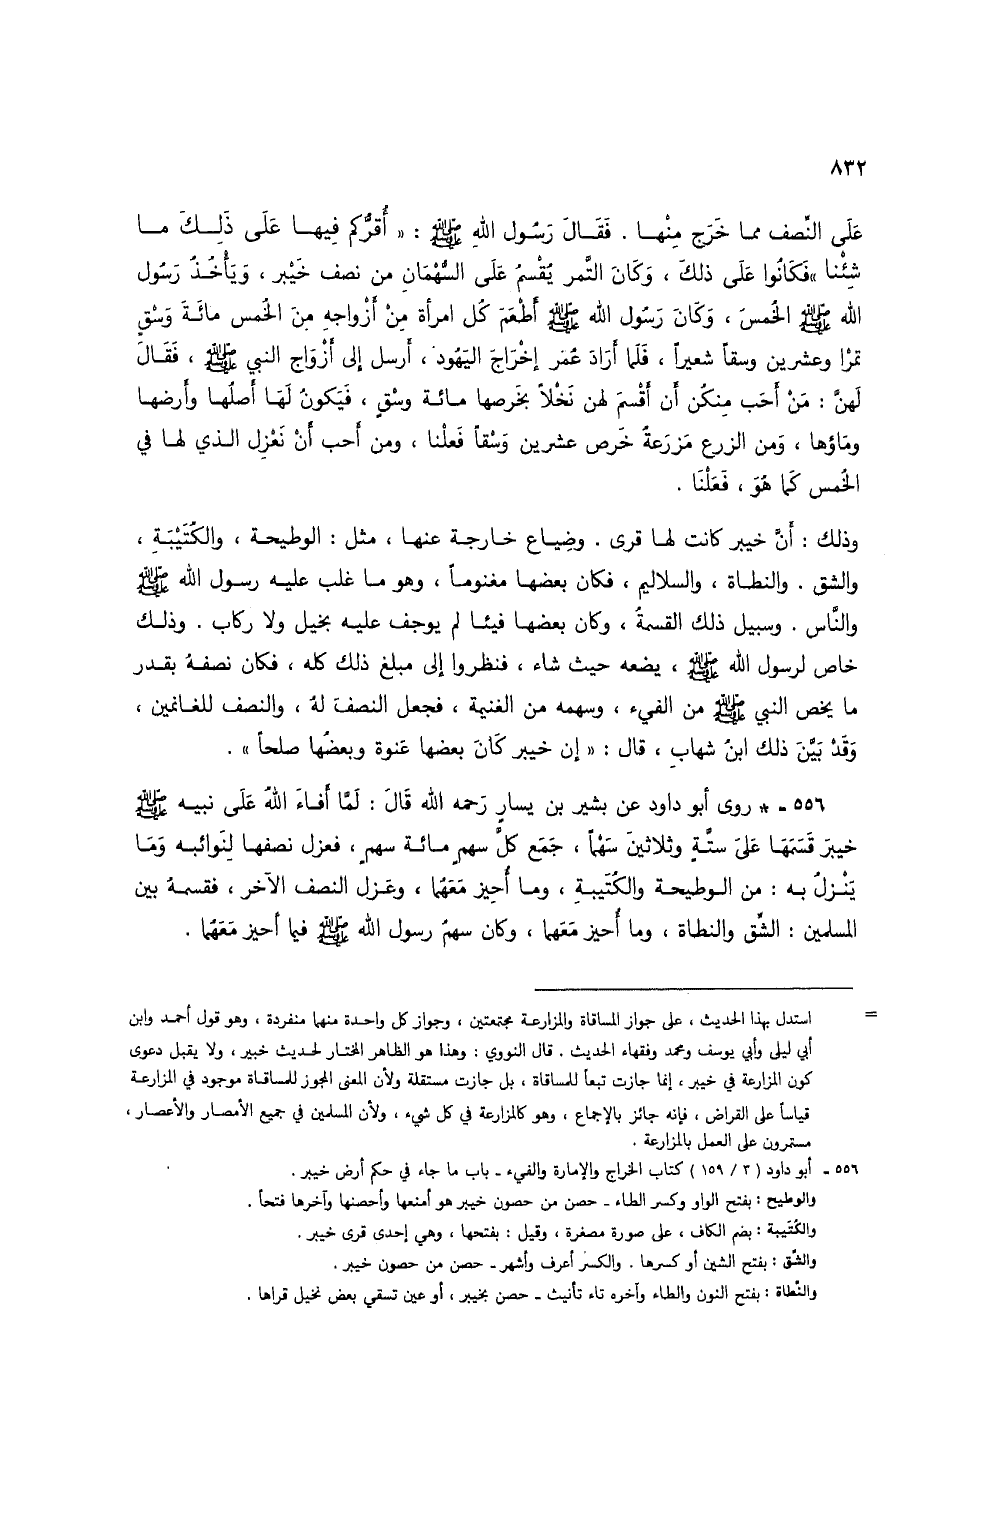 ٨٣٢
عَلَى النِّصف مما خَرَج مِنْهـا . فَقَـالَ رَسُول اللهِ ﷺ : « أُقرُّكم فِيهـا عَلَى ذَلِـكَ مـا
شِئْنا »فَكَانُوا عَلَى ذلكَ ، وَكَانَ التَّمر يُقْسمُ عَلَى السُّهْمَانِ من نصف خَيْبر ، وَيَأْخُـذُ رَسُول
الله ﷺ الخُمسَ ، وَكَانَ رَسُول الله ﷺ أَطْعَمَ كُل امرأة مِنْ أَزْواجهِ مِنَ الخُمس مائَـةَ وَسْقٍ
تمرًا وعشرين وسقاً شعيراً ، فَلَمَا أَرَادَ عُمَر إخْرَاجَ اليَهُود ، أَرسل إلى أَزْوَاج النبي ﷺ ، فَقَـالَ
لَهنَّ : مَنْ أحَب مِنكُن أن أَقْسمَ لهن نَخْلاً بخَرصها مـائـة وسْقٍ ، فَيَكونُ لَهَا أَصلُهـا وأَرضهـا
ومَاؤها ، وَمن الزرع مَزرَعةً خَرص عشرين وَسْقاً فَعلْنا ، ومن أحب أَنْ نَعْزل الـذي لهـا في
الخُمس كَمَا هُوَ ، فَعَلْنَا .
وذلك : أَنَّ خيبر كانت لهـا قرى . وضِيـاع خـارجـة عنهـا ، مثل : الوطيحـة ، والكُتَيْبَـةِ ،
والشق . والنطـاة ، والسلاليم ، فكان بعضهـا مغنومـاً ، وهو مـا غلب عليـه رسـول الله ﷺ
والنَّاس . وسبيل ذلك القسمةُ ، وكان بعضهـا فيئـا لم يوجف عليـه بخيل ولا ركاب . وذلـك
خاص لرسول الله ﷺ ، يضعه حيث شاء ، فنظروا إلى مبلغ ذلك كله ، فكان نصفـهُ بقـدر
ما يخص النبي ﷺ من الفيء ، وسهمه من الغنيمة ، فجعل النصف لهُ ، والنصف للغـانمين ،
وَقَدْ بَيَّنَ ذلك ابنُ شهابٍ ، قال : « إن خيبر كَانَ بعضها عَنوة وبعضُها صلحاً » .
٥٥٦ - * روى أبو داود عن بشير بن يسارٍ رَحمه الله قَالَ : لَمَّا أَفـاءَ اللهُ عَلَى نبيـه ﷺ
خيبرَ قَسَمَهَا عَلىَ ستَّةٍ وثلاثينَ سَهْماً ، جَمَع كلَّ سهمٍ مـائـة سهمٍ ، فعزل نصفهـا لِنَوائبـه وَمَـا
يَنْزلُ بـه : من الـوطيحـة والكُتَيبـةِ ، ومـا أُحِيز مَعَهُما ، وعَـزل النصف الآخر ، فقسمـهُ بين
المسلمين : الشِّق والنطاة ، وما أُحيز مَعَهما ، وكان سهمُ رسول الله ﷺ فيما أحيز مَعَهُما .
= استدل بهذا الحديث ، على جواز المساقاة والمزارعـة مجتمعتين ، وجواز كل واحـدة منهما منفردة ، وهو قول أحمـد وابن
أبي ليلى وأبي يوسف ومحمد وفقهاء الحديث . قال النووي : وهذا هو الظاهر المختـار لحـديث خيبر ، ولا يقبل دعوى
كون المزارعة في خيبر ، إنما جازت تبعاً للمساقاة ، بل جازت مستقلة ولأن المعنى المجوز للمساقـاة موجود في المزارعـة
قياساً على القراض ، فإنه جائز بالإجماع ، وهو كالمزارعة في كل شيء ، ولأن المسلمين في جميع الأمصـار والأعصـار ،
مستمرون على العمل بالمزارعة .
٥٥٦ - أبو داود ( ٣ / ١٥٩ ) كتاب الخراج والإمارة والفيء - باب ما جاء في حكم أرض خيبر .
والوطيح : بفتح الواو وكسر الطاء - حصن من حصون خيبر هو أمنعها وأحصنها وآخرها فتحاً .
والكُتَيبة : بضم الكاف ، على صورة مصغرة ، وقيل : بفتحها ، وهي إحدى قرى خيبر .
والشَّق : بفتح الشين أو كسرها . والكسر أعرف وأشهر - حصن من حصون خيبر .
والنَّطاة : بفتح النون والطاء وآخره تاء تأنيث - حصن بخيبر ، أو عين تسقي بعض نخيل قراها .